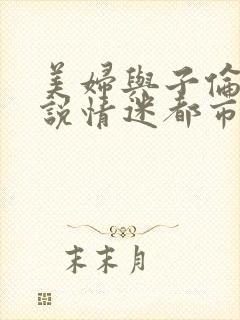 美婦與子倫
說情迷都市
末末月